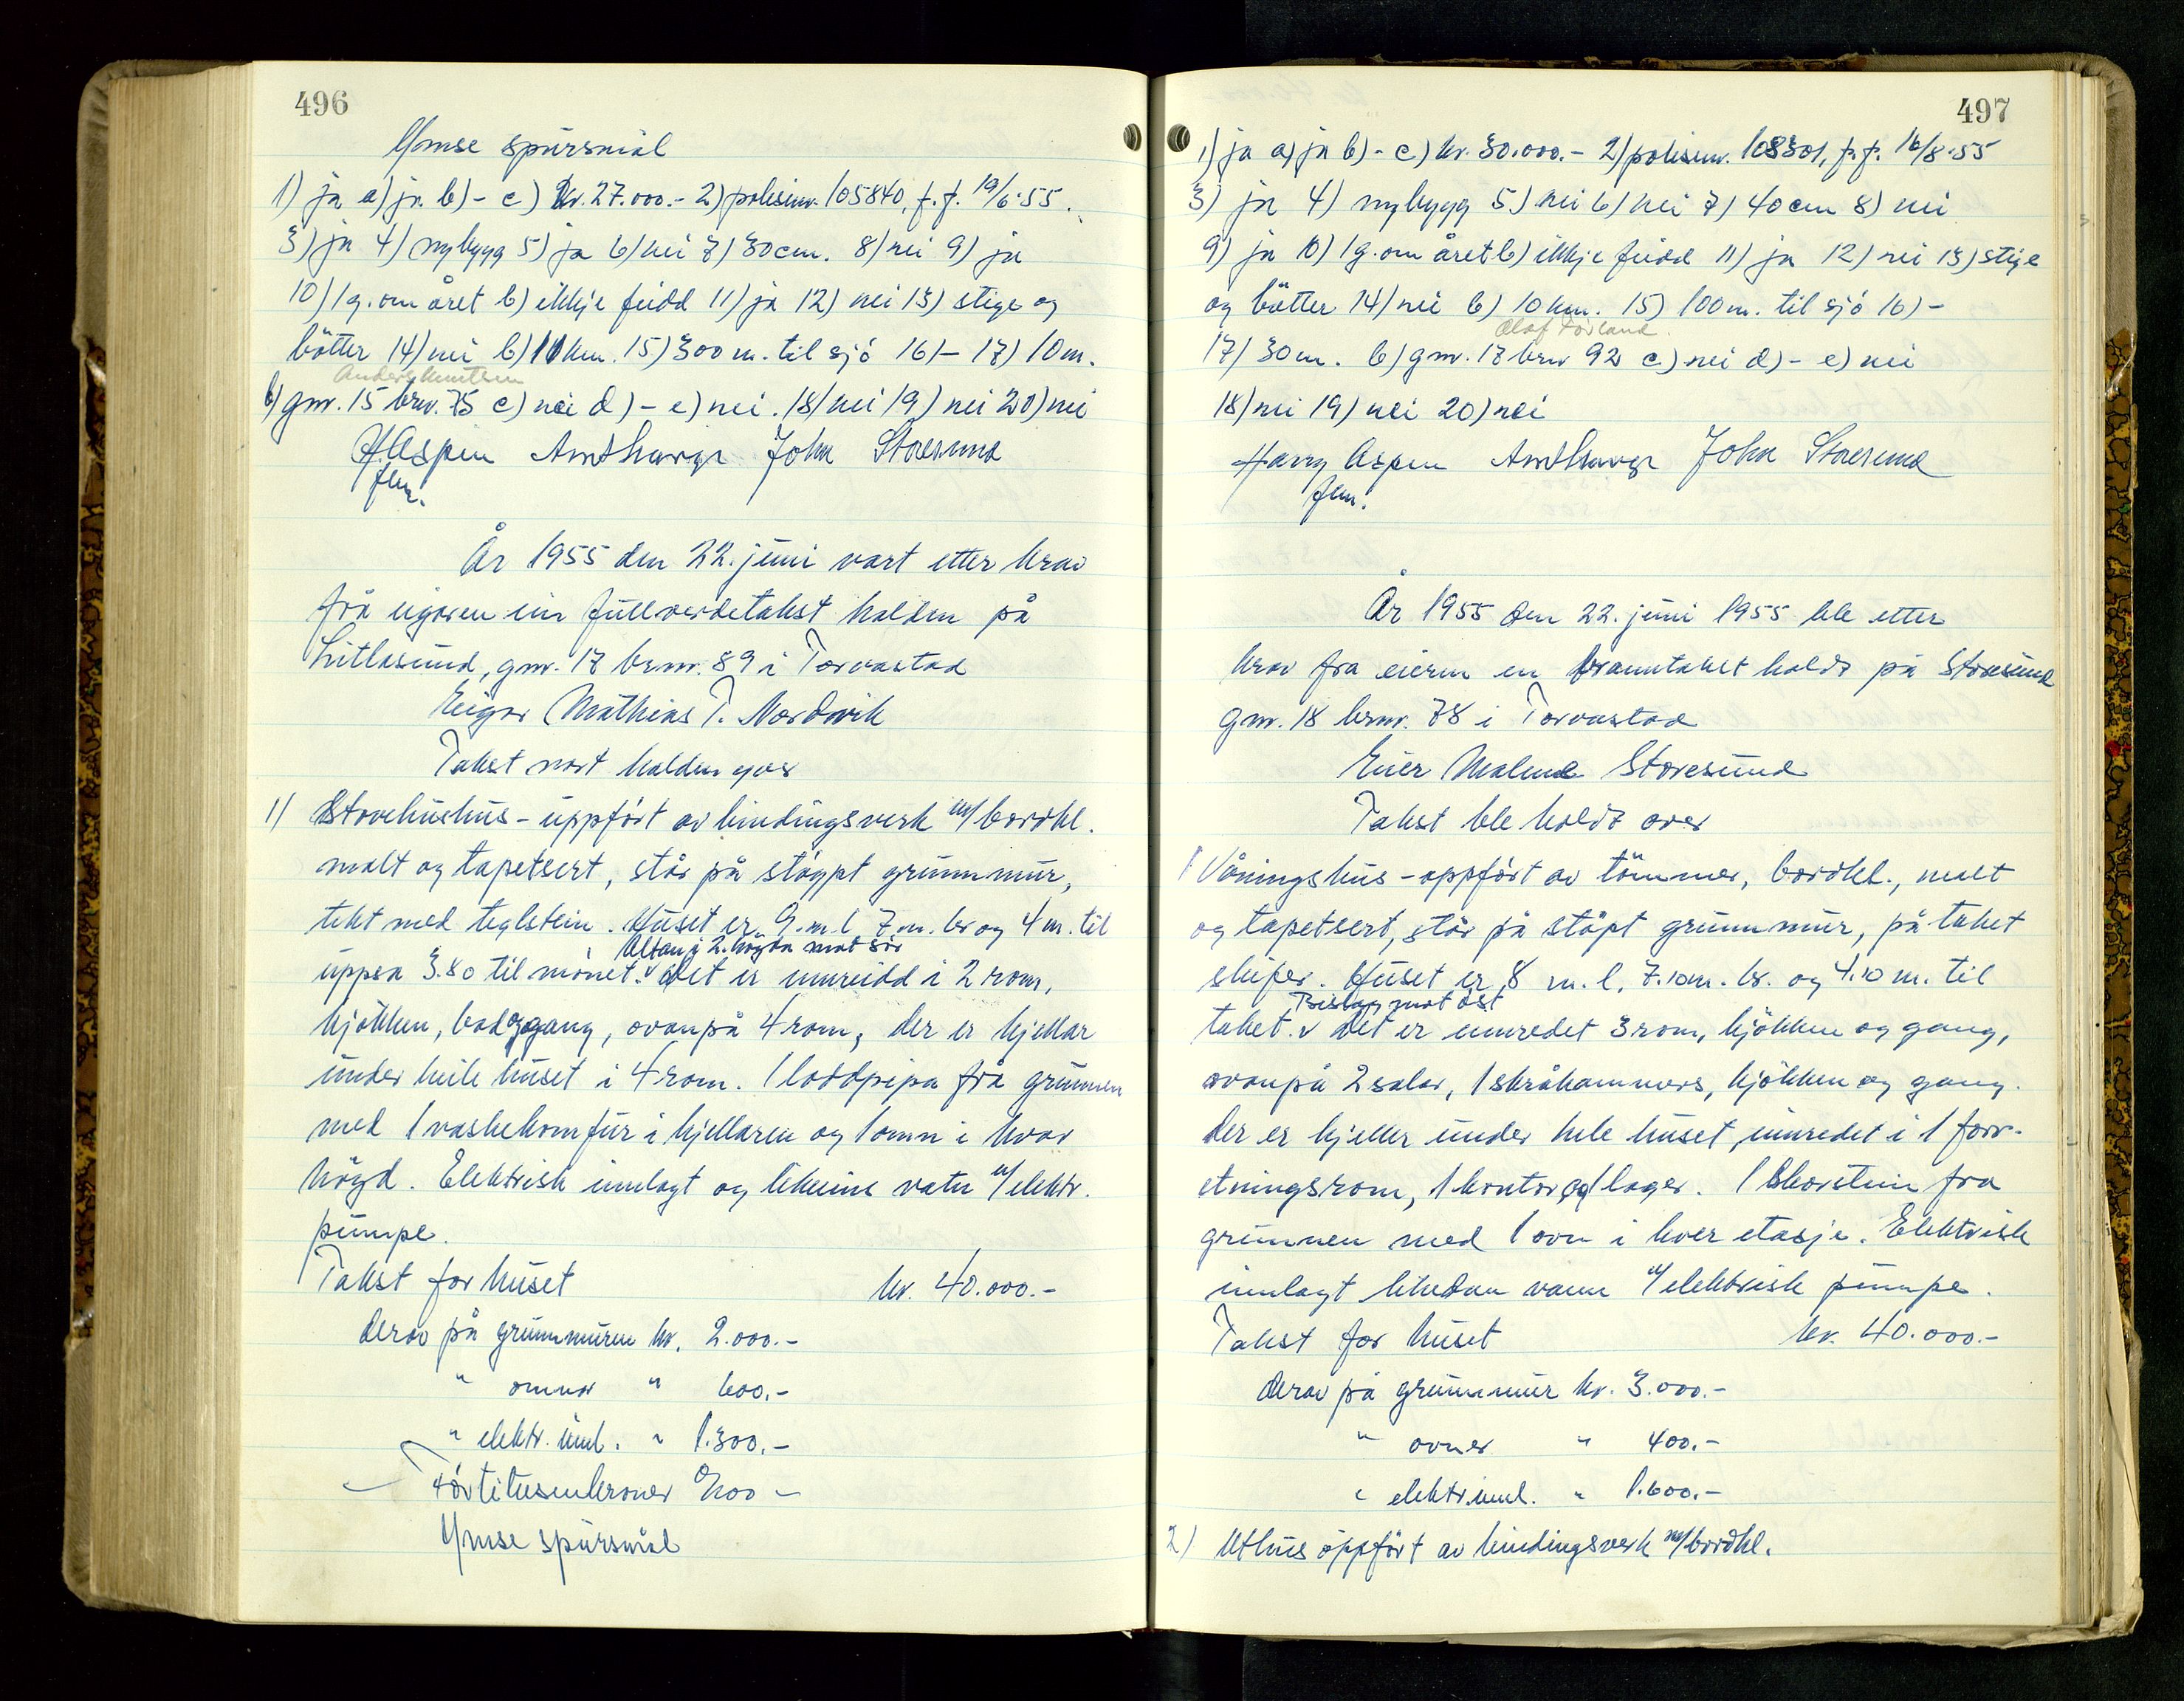 496
Ymse spursmål
1) ja a) ja b) - c) kr. 27.000.- 2) polisenr. 105840, f.f. 19/6-55.
3) ja 4) nybygg 5) ja 6) nei 7) 30 cm. 8) nei 9) ja
10) 1 g. om året b) ikkje feidd 11) ja 12) nei 13) stige og
bøtter 14) nei b) 11 km. 15) 300 m. til sjø 16) - 17) 10 m.
Anders
b) gnr. 15 brnr. 75 c) nei d) - e) nei. 18) nei 19) nei 20) nei
H. Aspen John Storesund
fm.
År 1955 den 22. juni vart etter krav
frå eigaren ein fullverdetakst halden på
Litlasund, gnr. 17 brnr. 89 i Torvastad
Eigar Mathias T. Nordvik
Takst vart halden yver
1) Stovehushus - uppført av bindingsverk m/bordkl.
malt og tapetsert, står på støypt grunnmur,
tekt med teglstein. Huset er 9. m. l 7. m. br og 4 m. til
Altan i 2. høgda mot sør
uppsa 3.80 til mønet. v Det er innreidd i 2 rom,
kjøkken, bad og gang, ovanpå 4 rom, der er kjellar
under heile huset i 4 rom. 1 loddpipa frå grunnen
med 1 vaskekomfur i kjellaren og 1 omn i kvar
høgd. Elektrisk innlagt og likeins vatn m/elektr.
pumpe.
Takst for huset kr. 40.000.-
derav på grunnmuren kr. 2.000.-
" omnar " 600.-
" elektr. innl. " 1.300.-
Førtitusenkroner 0/100 -
Ymse spursmål
497
1) ja a) ja b) - c) kr. 30.000.- 2) polisenr. 108301, f.f. 16/8-55
3) ja 4) nybygg 5) nei 6) nei 7) 40 cm 8) nei
9) ja 10) 1 g. om året b) ikkje feidd 11) ja 12) nei 13) stige
og bøtter 14) nei b) 10 km. 15) 100 m. til sjø 16) -
Olaf Førland.
17) 30 m. b) gnr. 17 brnr 92 c) nei d) - e) nei
18) nei 19) nei 20) nei
Harry Aspen John Storesund
fm.
År 1955 den 22. juni 1955 ble etter
krav fra eieren en branntakst holdt på Storesund
gnr. 18 brnr. 78 i Torvastad
Eier Malene Storesund
Takst ble holdt over
1 Våningshus - oppført av tømmer, bordkl., malt
og tapetsert, står på støpt grunnmur, på taket
skifer. Huset er 8 m. l. 7.10 m. br. og 4.10 m. til
Bislag mot øst
taket. v Det er innredet 3 rom, kjøkken og gang,
ovanpå 2 salar, 1 skråkammers, kjøkken og gang.
Der er kjeller under hele huset, innredet i 1 forr-
etningsrom, 1 kontor og 1 lager. 1 skorstein fra
grunnen med 1 ovn i hver etasje. Elektrisk
innlagt likedan vann m/elektrisk pumpe.
Takst for huset kr. 40.000.-
derav på grunnmur kr. 3.000.-
" ovner " 400.-
" elektr. innl. " 1.600.-
2) Uthus oppført av bindingsverk m/bordkl.